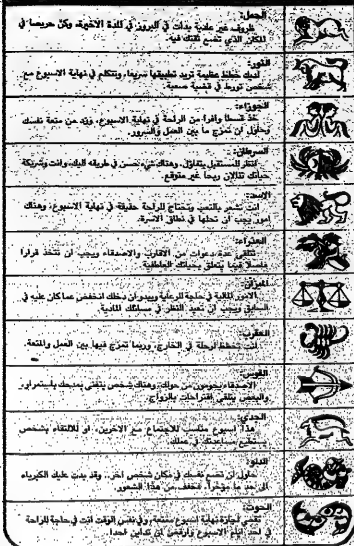 الحمل:
ظروف غير عادية بدأت في البروز في المدة الأخيرة، وكن حريصا في
المكان الذي تضع ثقتك فيه.
الثور:
لديك خطط عظيمة تريد تطبيقها سريعا، وتتكلم في نهاية الاسبوع مع
شخص تورط في قضية صعبة.
الجوزاء:
خذ قسطا وافرا من الراحة في نهاية الاسبوع، وزد من متعة نفسك
وحاول ان تمزج ما بين العمل والسرور.
السرطان:
انظر للمستقبل بتفاؤل، وهناك شيء حسن في طريقه اليك، وانت وشريكة
حياتك تنالان ربحا غير متوقع.
الاسد:
انت تشعر بالتعب وتحتاج للراحة حقيقة في نهاية الاسبوع، وهناك
امور يجب ان تحلها في نطاق الاسرة.
العذراء:
تتلقى عدة دعوات من الاقارب والاصدقاء ويجب ان تتخذ قرارا
فاصلا فيما يتعلق بحياتك العاطفية.
الميزان:
الامور المالية في حاجة للرعاية ويبدو ان دخلك انخفض عما كان عليه في
السابق ويجب ان تعيد النظر في مسائلك المادية.
العقرب:
انت تخطط لرحلة في الخارج، وربما تمزج فيها بين العمل والمتعة.
القوس:
الاصدقاء يحومون من حولك، وهناك شخص يتغنى بمدحك باستمرار،
والبعض يتلقى اقتراحات بالزواج.
الجدي:
هذا اسبوع مناسب للاجتماع مع الآخرين، او للالتقاء بشخص
يستطيع مساعدتك في عملك.
الدلو:
حاول ان تضع نفسك في مكان شخص آخر، وقد بدت عليك الكبرياء
الى حد ما مؤخرا، فخفف من هذا الشعور.
الحوت:
تقضي اجازة نهاية اسبوع ممتعة، وفي نفس الوقت انت في حاجة للراحة
في اسبوع وارفض ان تداين احدا.